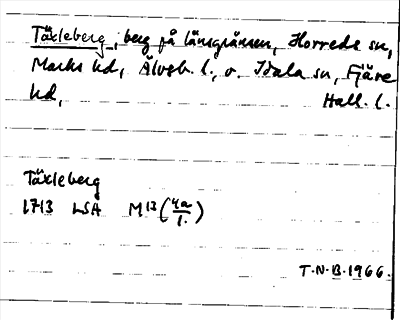 Täxleberg, berg på länsgränsen, Horreds sn,
Marks hd, Älvsb. l., o. Idala sn, Fjäre
hd, Hall. l.
Täxleberg
1713 LSA M13 (4a/1.)
T.N.B. 1966.